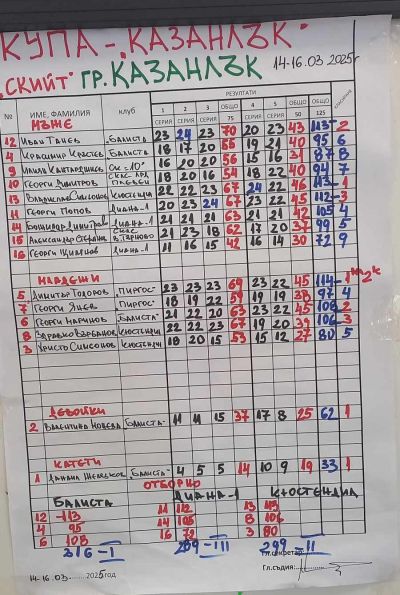 КУПА - „КАЗАНЛЪК"
„СКИЙТ" ГР. КАЗАНЛЪК 14-16.03 2025г
№ ИМЕ, ФАМИЛИЯ клуб РЕЗУЛТАТИ
1 СЕРИЯ 2 СЕРИЯ 3 СЕРИЯ ОБЩО 75 4 СЕРИЯ 5 СЕРИЯ ОБЩО 50 ОБЩО 125
МЪЖЕ
12 ИВАН ТАНЕВ „БАЛИСТА" 23 24 23 70 20 23 43 113 2
4 КРАСИМИР КРЪСТЕВ БАЛИСТА 18 17 20 55 19 21 40 95 6
9 16 20 20 56 15 16 31 87 8
10 ГЕОРГИ ДИМИТРОВ 18 20 16 54 18 22 40 94 7
13 ВЛАДИСЛАВ СИМЕОНОВ КЮСТЕНДИЛ 22 22 23 67 24 22 46 113 1
11 ГЕОРГИ ПОПОВ ДИАНА-1 20 23 24 67 23 22 45 112 3
14 ДИМИТРОВ ДИАНА-1 21 21 21 63 21 21 42 105 4
15 АЛЕКСАНДЪР 21 23 18 62 17 20 37 99 5
16 ГЕОРГИ ДИАНА-1 11 16 15 42 16 14 30 72 9
МЛАДЕЖИ
5 ДИМИТЪР ТОДОРОВ „ПИРГОС" 23 23 23 69 23 22 45 114 1
7 ГЕОРГИ ЯНЕВ ПИРГОС 18 19 22 59 19 19 38 97 4
6 ГЕОРГИ МАРИНОВ БАЛИСТА 21 22 20 63 23 22 45 108 2
8 ЗДРАВКО ВЪРБАНОВ КЮСТЕНДИЛ 22 22 23 67 19 20 39 106 3
3 ХРИСТО СИМЕОНОВ КЮСТЕНДИЛ 18 20 15 53 15 12 27 80 5
ДЕВОЙКИ
2 ВАЛЕНТИНА „БАЛИСТА" 11 11 15 37 17 8 25 62 1
КАДЕТИ
1 „БАЛИСТА" 4 5 5 14 10 9 19 33 1
ОТБОРНО
БАЛИСТА ДИАНА-1 КЮСТЕНДИЛ
12 - 113 11 112 13 113
4 - 95 14 105 8 106
6 108 16 72 3 80
316 - I 289 - III 299 - II
Гл.секретар
14-16.03 2025год Гл.съдия: